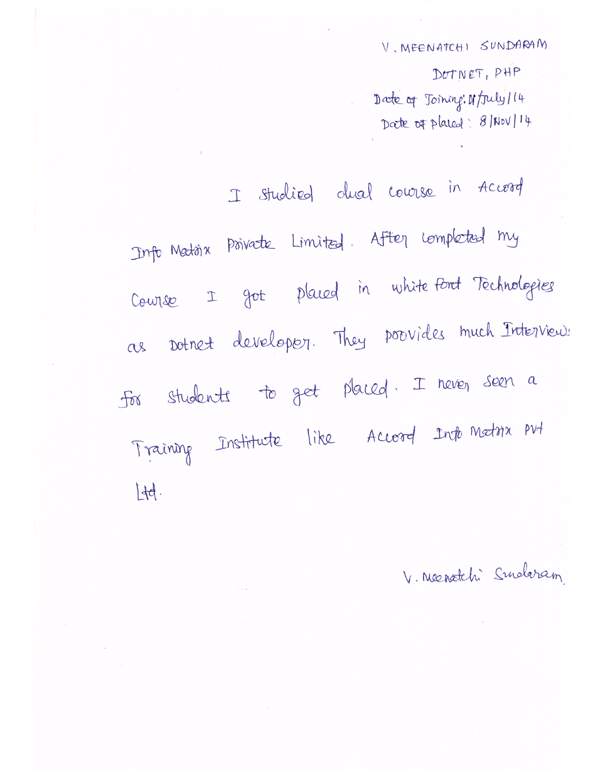 V. MEENATCHI SUNDARAM
DOTNET, PHP
Date of Joining: 11/July/14
Date of Placed: 8/Nov/14
I studied dual course in Accord
Info Matrix Private Limited. After completed my
Course I got placed in white font Technologies
as Dotnet developer. They provides much Interviews
for students to get placed. I never seen a
Training Institute like Accord Info Matrix pvt
Ltd.
V. Meenatchi Sundaram